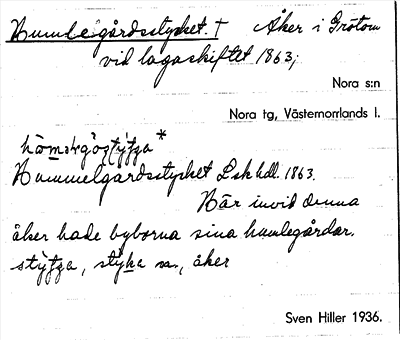 Humlegårdsstycket. † Åker i Grötom
vid lagaskiftet 1863;
Nora s:n
Nora tg, Västernorrlands l.
Hummelgardsstycket Lskhdl. 1863.
Här invid denna
åker hade byborna sina humlegårdar.
åker
Sven Hiller 1936.